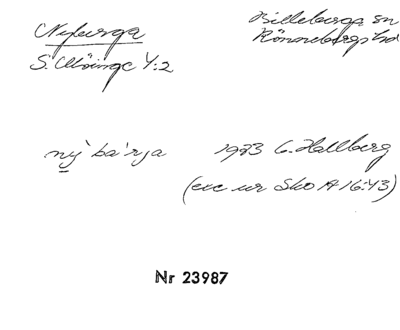 Nyberga
Billeberga sn
S. Möinge 4:2
Rönnebergs hd
ny`ba'rja
1933 G. Hallberg
(exc ur Sko A 16:43)
Nr 23987